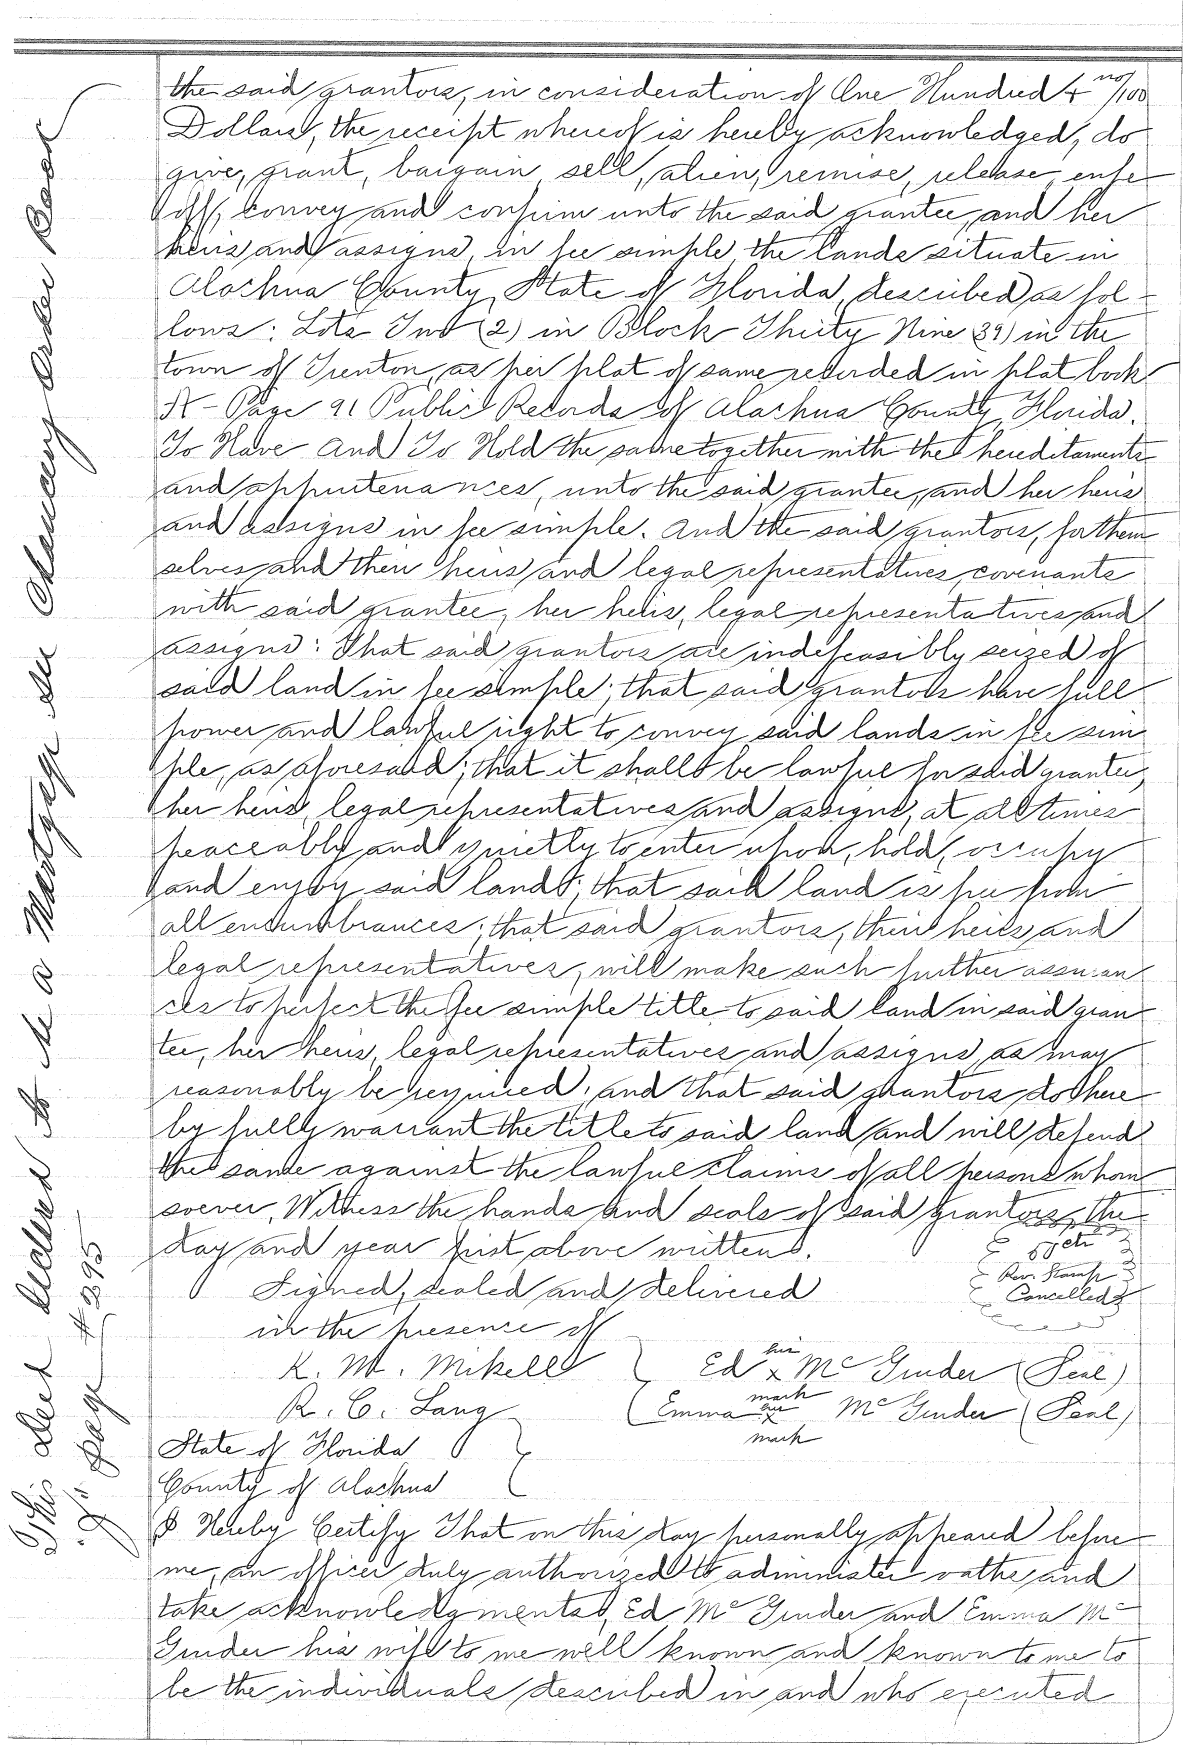 the said grantors, in consideration of One Hundred + no/100
Dollars, the receipt whereof is hereby acknowledged, do
give, grant, bargain, sell, alien, remise, release, enfe
off, convey and confirm unto the said grantee, and her
heirs and assigns in fee simple the lands situate in
Alachua County, State of Florida, described as fol-
lows: Lots Two (2) in Block Thirty Nine (39) in the
town of Trenton, as per plat of same recorded in plat book
A- Page 91 Public Records of Alachua County, Florida.
To Have And To Hold the same together with the hereditaments
and appurtenances, unto the said grantee, and her heirs
and assigns in fee simple. And the said grantors, for them
selves and their heirs and legal representatives, covenants
with said grantee, her heirs, legal representatives and
assigns: That said grantors are indefeasibly seized of
said land in fee simple; that said grantors have full
power and lawful right to convey said lands in fee sim
ple, as aforesaid; that it shall be lawful for said grantee,
her heirs, legal representatives and assigns, at all times
peaceably and quietly to enter upon, hold, occupy
and enjoy said land; that said land is free from
all encumbrances; that said grantors, their heirs and
legal representatives, will make such further assuran
ces to perfect the fee simple title to said land in said gran
tee, her heirs, legal representatives and assigns, as may
reasonably be required; and that said grantors do here
by fully warrant the title to said land and will defend
the same against the lawful claims of all persons whom
soever. Witness the hands and seals of said grantors, the
day and year first above written.
50cts
Rev. Stamp
Cancelled
Signed, sealed and delivered
in the presence of
K. M. Mikell
Ed his x mark McGinder (Seal)
R. C. Lang
Emma x mark McGinder (Seal)
State of Florida
County of Alachua
I Hereby Certify That on this day personally appeared before
me, an officer duly authorized to administer oaths and
take acknowledgments, Ed McGinder and Emma Mc
Ginder his wife to me well known and known to me to
be the individuals described in and who executed
This Deed declared to be a Mortgage see Chancery Order Book
"J" page #295